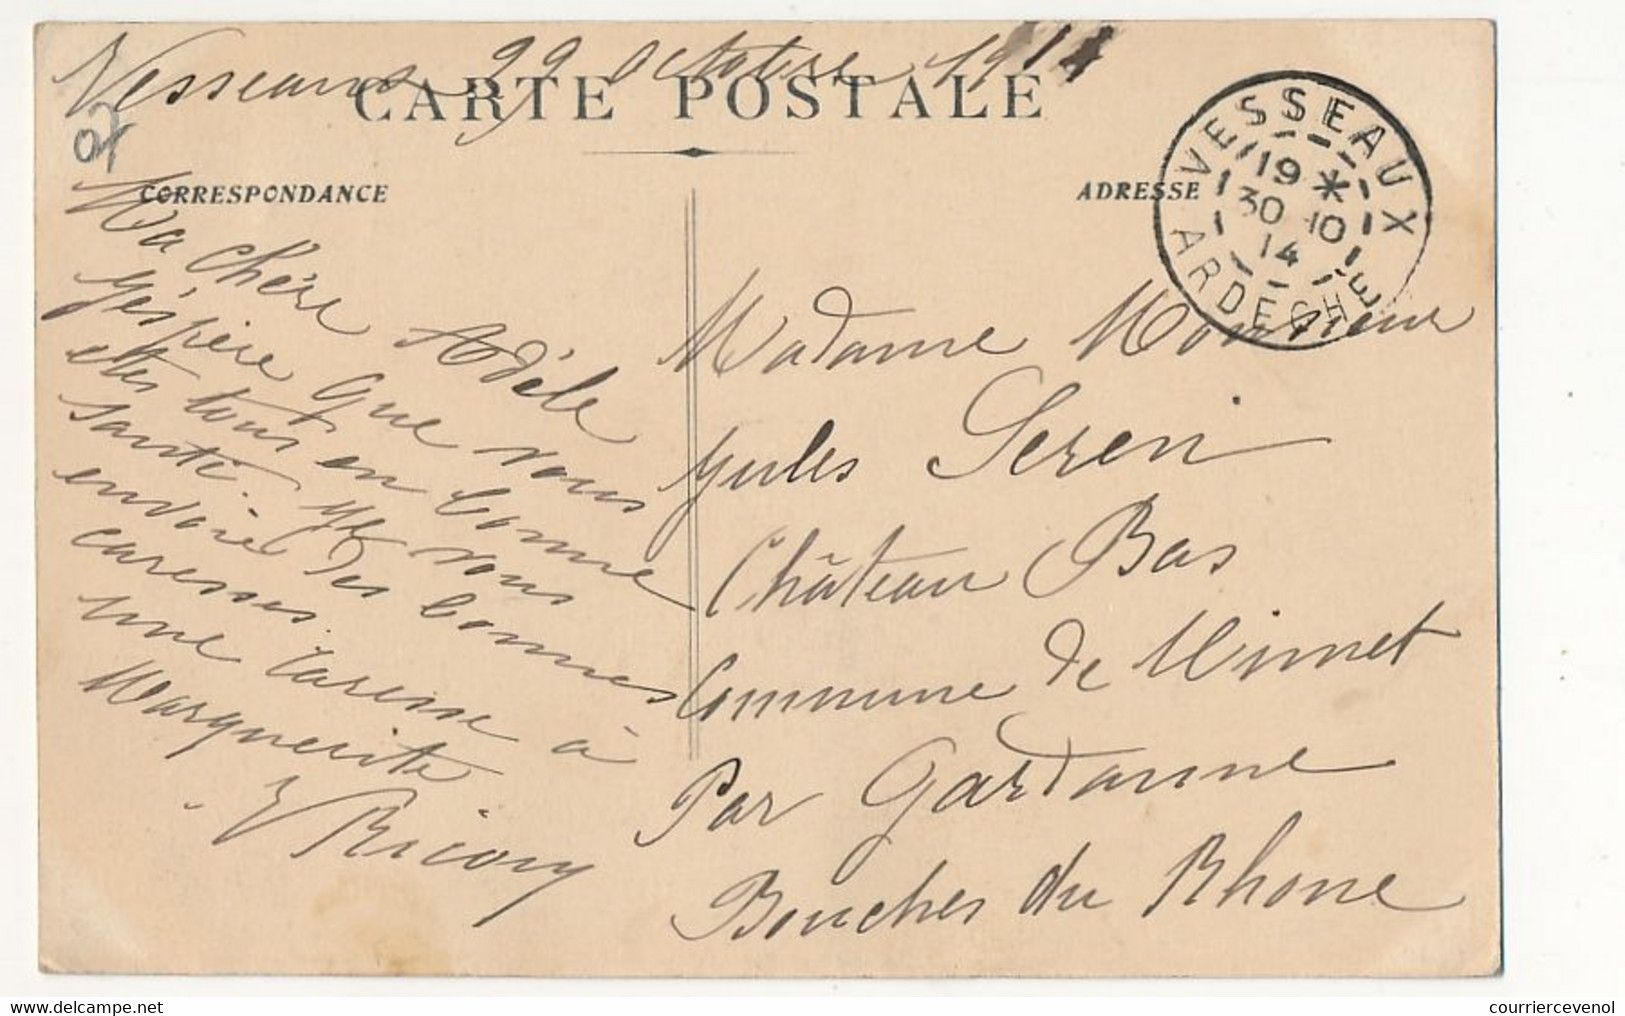 Vesseaux 29 Octobre 1914
CARTE POSTALE
07
CORRESPONDANCE
Ma Chère Adèle
J'éspère que vous
êtes tous en bonne
santé. Je vous
envoie des bonnes
caresses.
une caresse à
Marguerite
ADRESSE
VESSEAUX
19 *
30 -10
14
ARDÈCHE
Madame Monsieur
Jules Seren
Château Bas
Commune de Mimet
Par Gardanne
Bouches du Rhone
courriercevenol